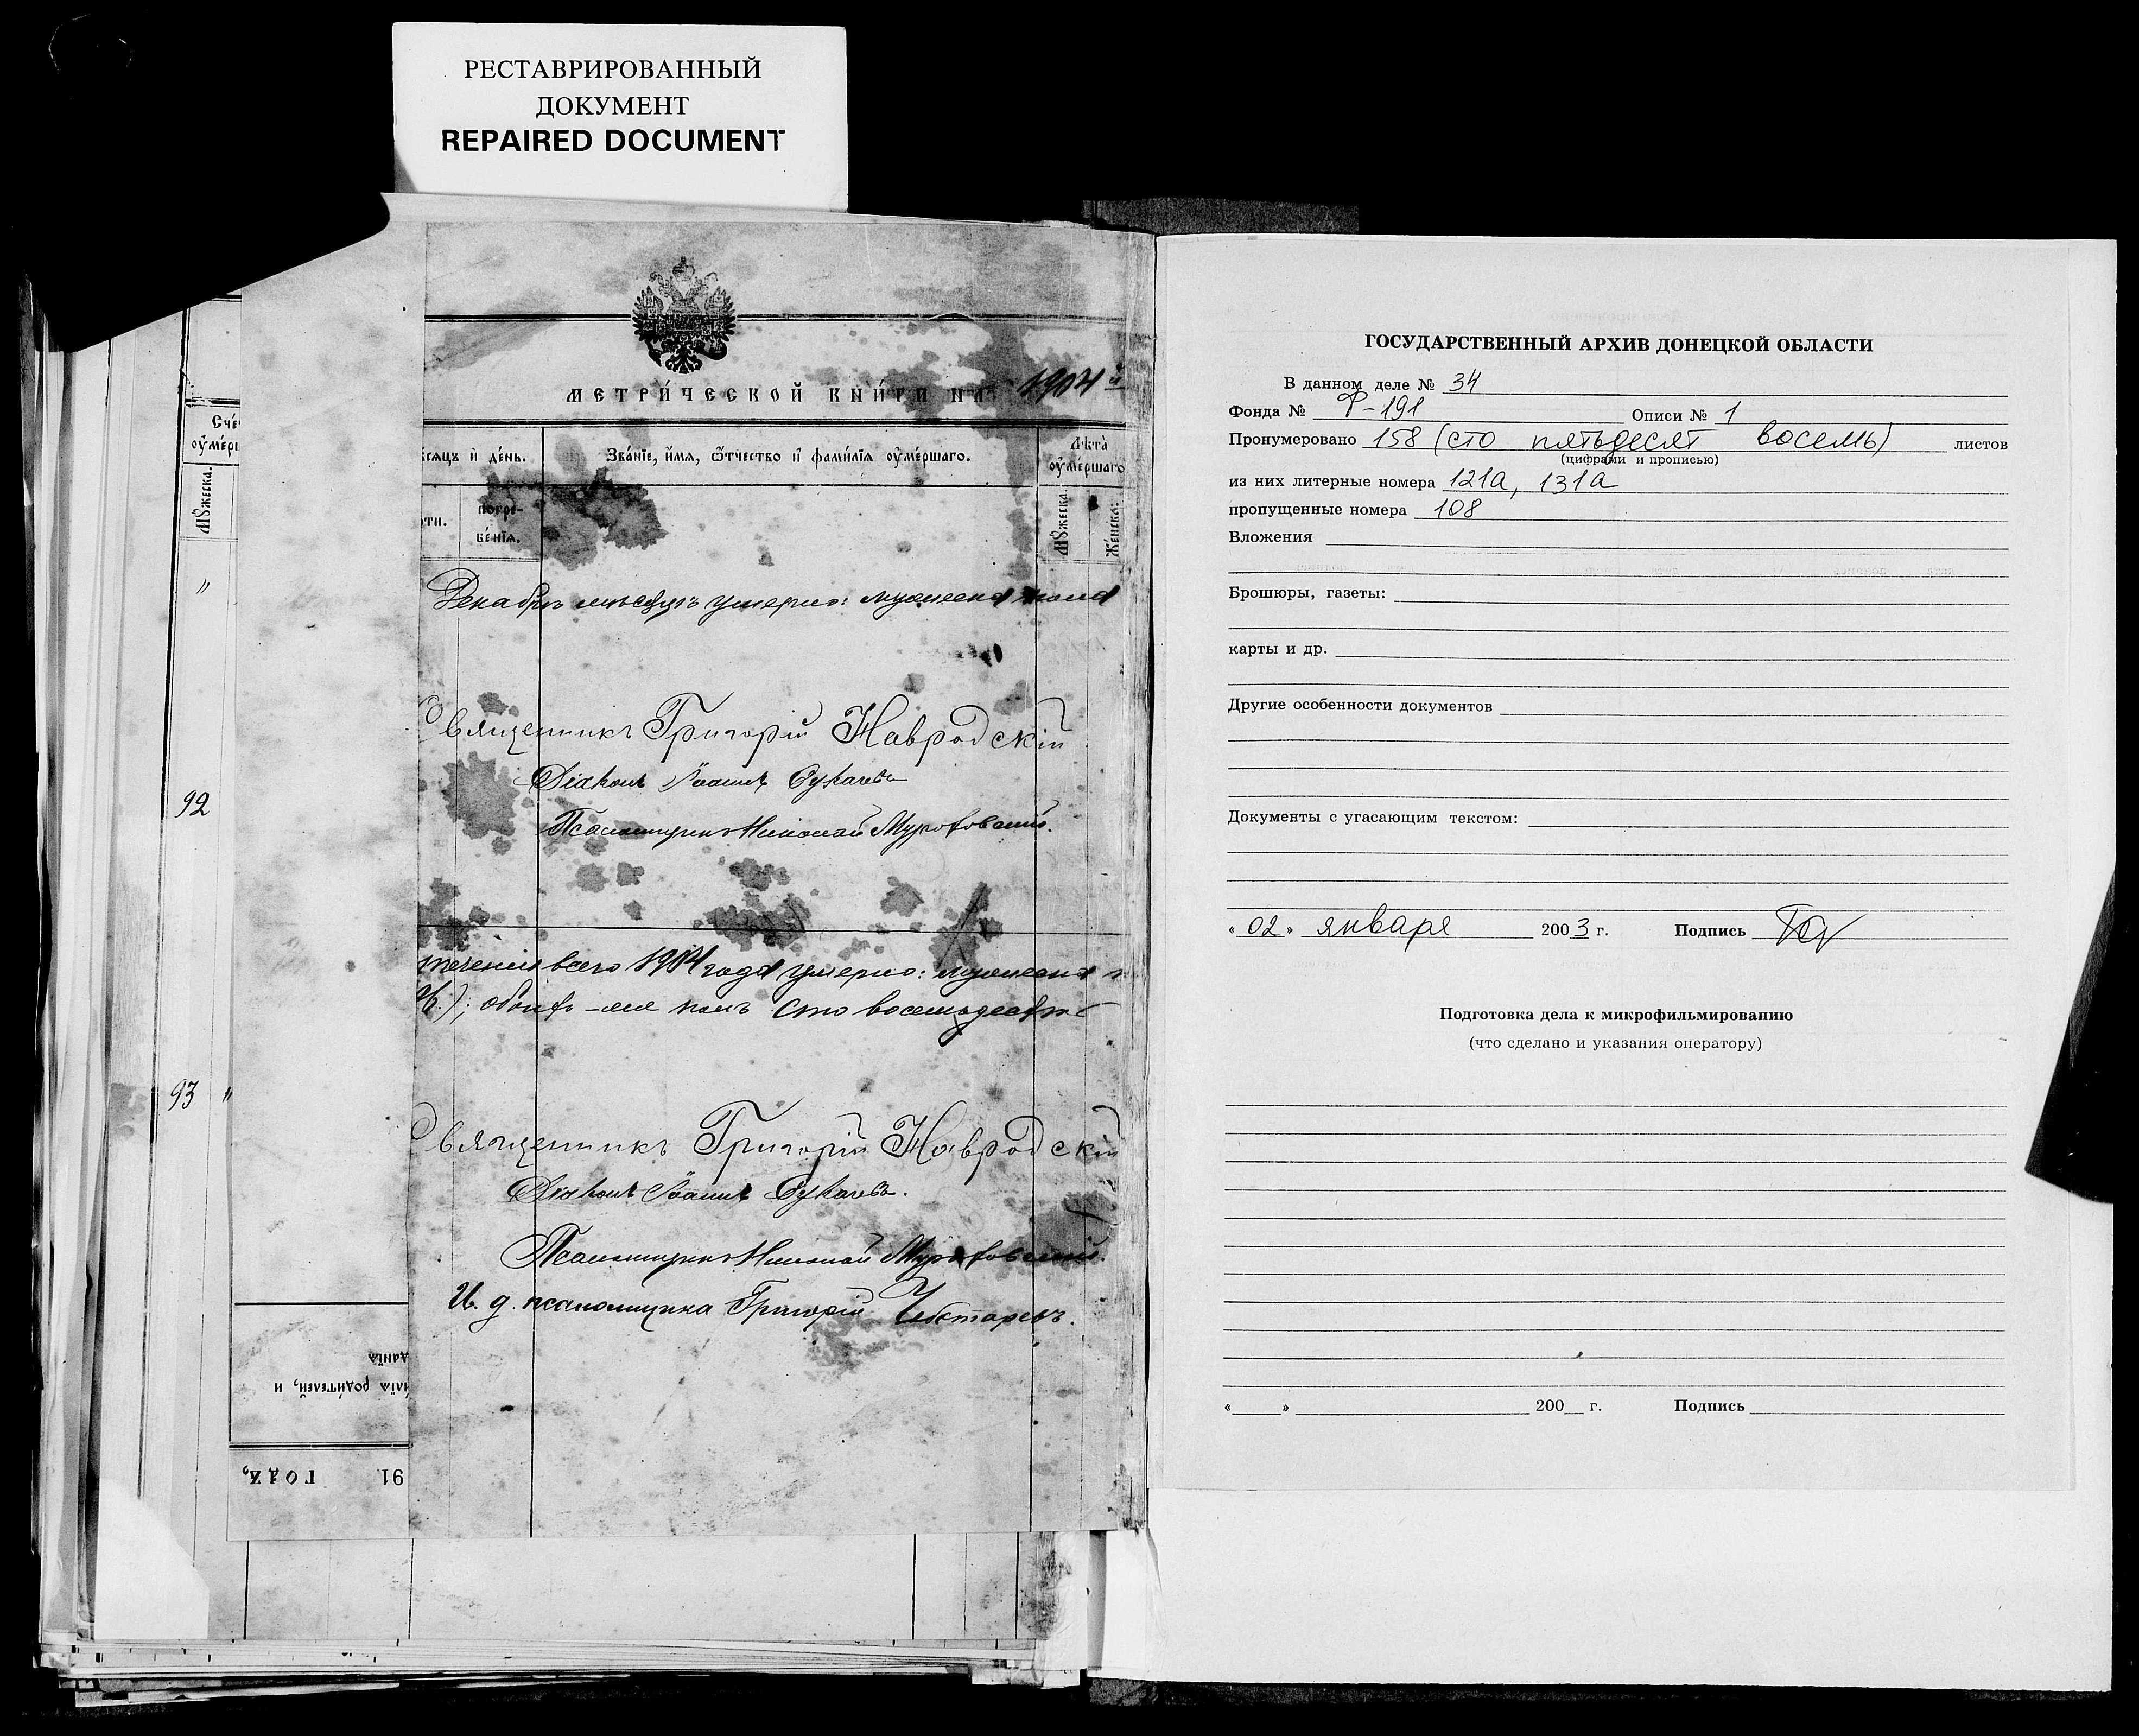 РЕСТАВРИРОВАННЫЙ
ДОКУМЕНТ
REPAIRED DOCUMENT
МЕТРИ́ЧЕСКОЙ КНИ́ГИ НА 1904й
Сче́
оумéрш
Мꙋжеска.
мѣсяцъ и де́нь.
Зва́нїе, и́мя, ѿтчество и фами́лїя оумершаго.
Лѣта̀
оуме́ршаго
сме́рти.
погре-
бе́нїя.
Мꙋжеска.
Же́нска:
"
Декабрѣ мѣсяцѣ умерло: мужеска пола
Священникъ Григорій Навродскій
Діаконъ Іоаннъ
92
Псаломщикъ Николай
теченіи всего 1904 года умерло: мужеска
обоего-же полъ сто восемьдесятъ
93 "
Священникъ Григорій Навродскій
Діаконъ Іоаннъ
Псаломщикъ Николай
И. д. псаломщика Григорій
да́нїя
и́лїя роди́телей, и
91 годъ,
ГОСУДАРСТВЕННЫЙ АРХИВ ДОНЕЦКОЙ ОБЛАСТИ
В данном деле № 34
Фонда № Ф-191 Описи № 1
Пронумеровано 158 (сто пятьдесят восемь) листов
(цифрами и прописью)
из них литерные номера 121а, 131а
пропущенные номера 108
Вложения
Брошюры, газеты:
карты и др.
Другие особенности документов
Документы с угасающим текстом:
«02» января 2003 г. Подпись
Подготовка дела к микрофильмированию
(что сделано и указания оператору)
«   » 200 г. Подпись